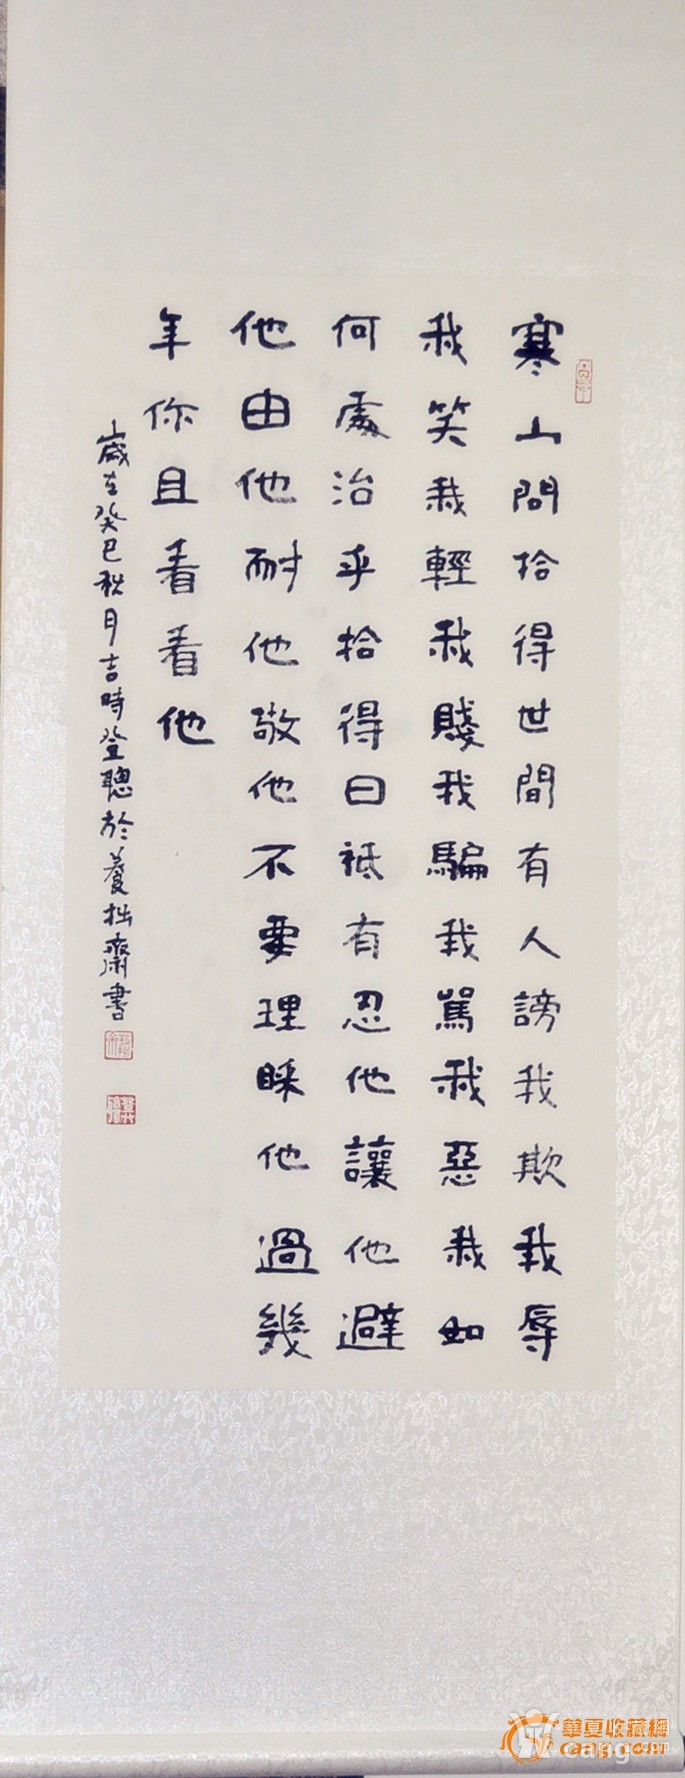 寒山問拾得世間有人謗我欺我辱
我笑我輕我賤我騙我罵我惡我如
何處治乎拾得曰祗有忍他讓他避
他由他耐他敬他不要理睬他過幾
年你且看看他
歲在癸巳秋月吉時登聰於養拙齋書
華夏收藏網
cang.com